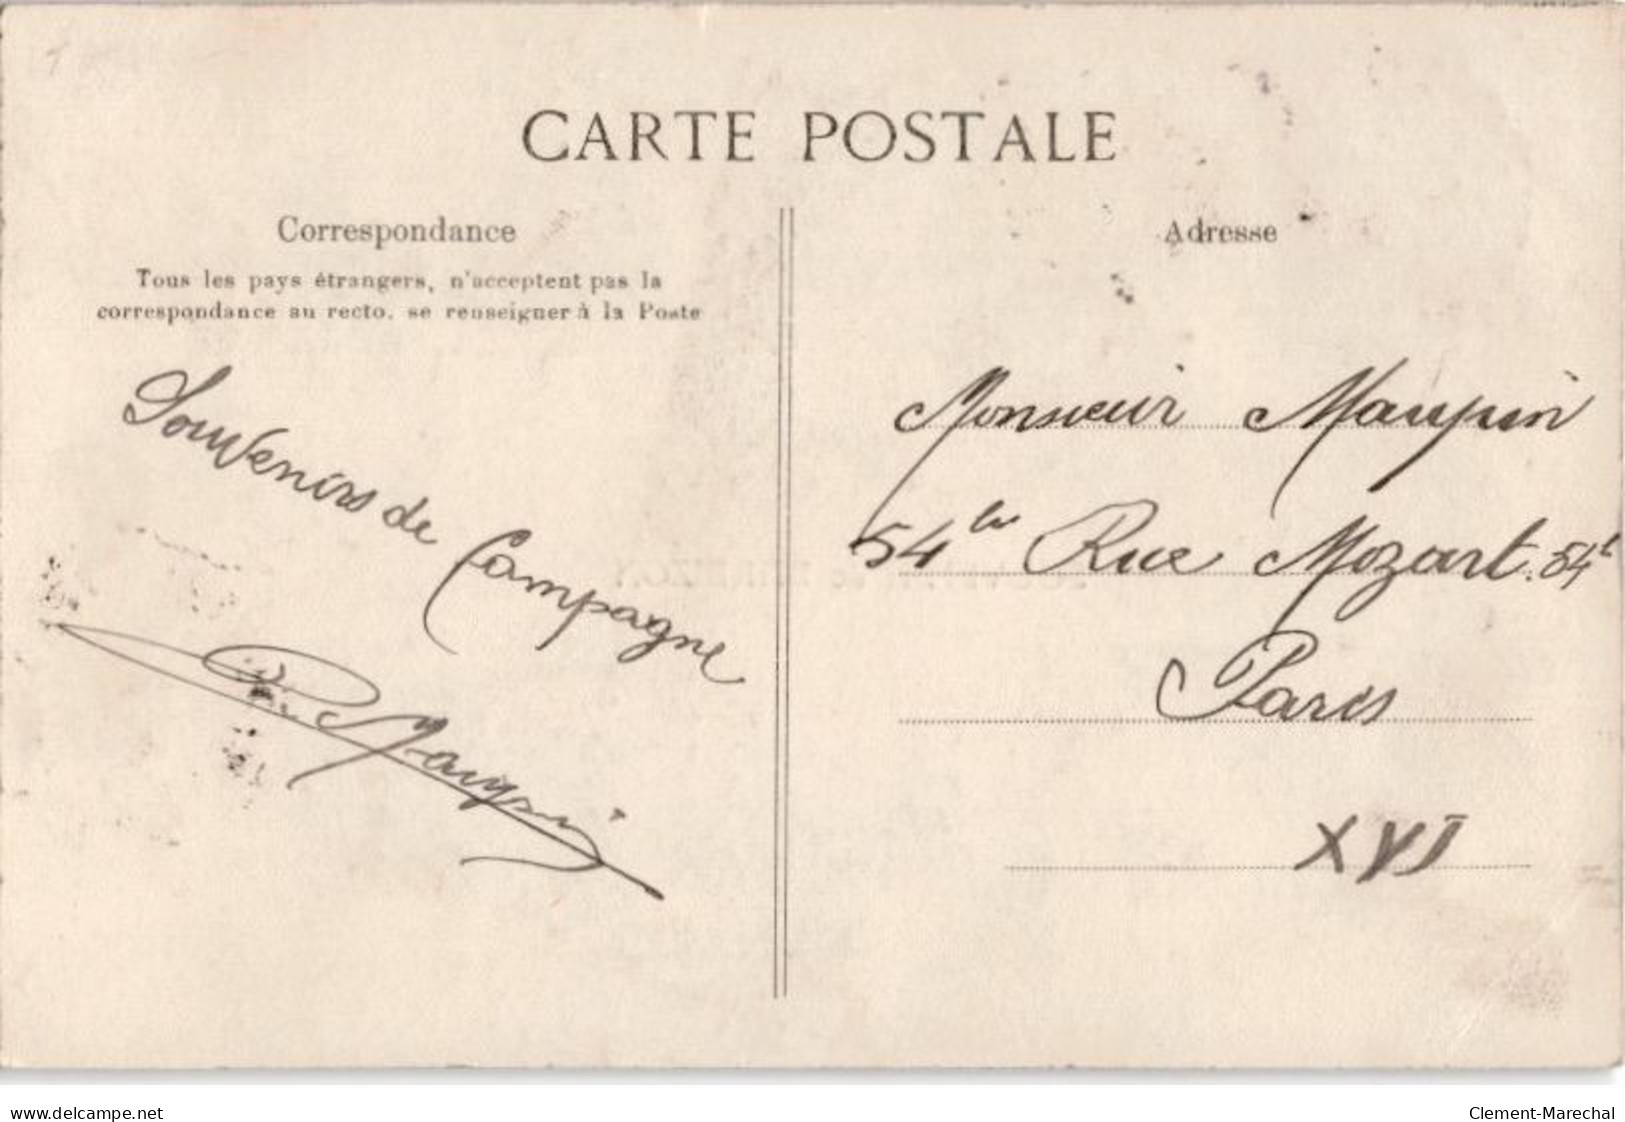 CARTE POSTALE
Correspondance
Tous les pays étrangers, n'acceptent pas la
correspondance au recto. se renseigner à la Poste
Souvenirs de Campagne
Maupin
Adresse
Monsieur Maupin
54 Rue Mozart. 54
Paris
XVI
www.delcampe.net
Clement-Marechal